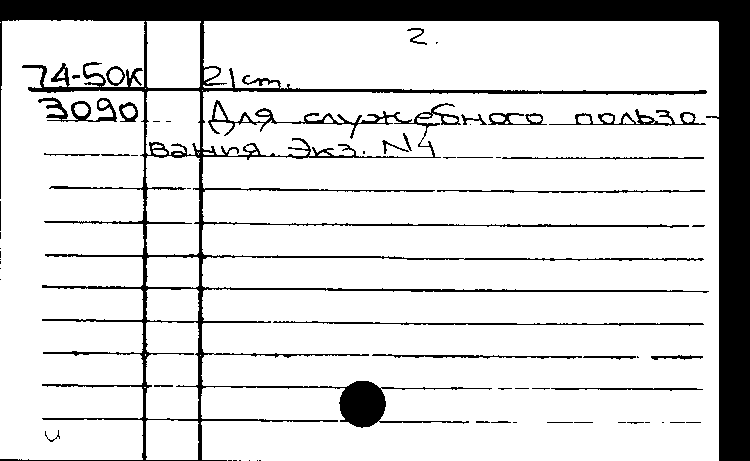 2.
74-50К 21 ст.
3090 Для служебного пользо-
вания. Экз. N4
и